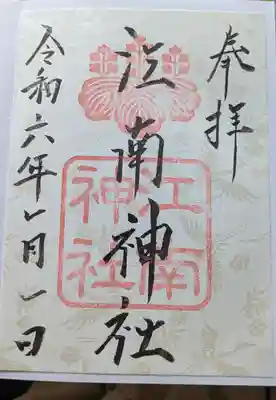 奉拝
江南神社
江南
神社
令和六年1月1日